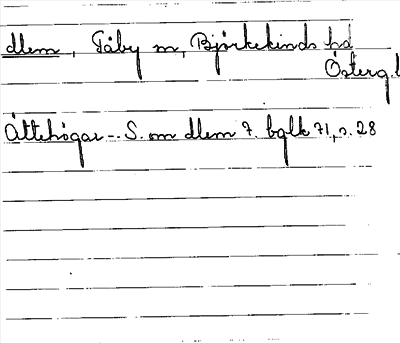 dlem, Tåby sn, Björkekinds hd
Österg.l
Ättehögar -- S. om dlem 7. bglk 71, s. 28